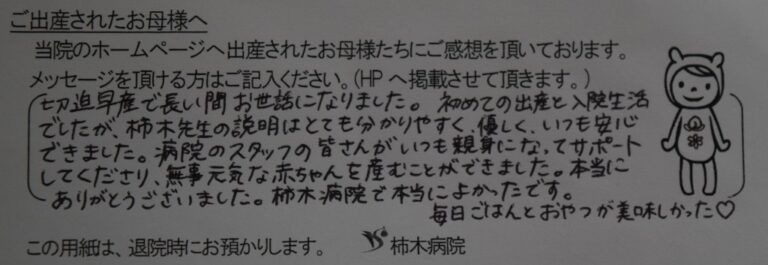 ご出産されたお母様へ
当院のホームページへ出産されたお母様たちにご感想を頂いております。
メッセージを頂ける方はご記入ください。(HPへ掲載させて頂きます。)
切迫早産で長い間お世話になりました。初めての出産と入院生活
でしたが、柿木先生の説明はとても分かりやすく、優しく、いつも安心
できました。病院のスタッフの皆さんがいつも親身になってサポート
してくださり、無事元気な赤ちゃんを産むことができました。本当に
ありがとうございました。柿木病院で本当によかったです。
毎日ごはんとおやつが美味しかった♡
この用紙は、退院時にお預かりします。 柿木病院